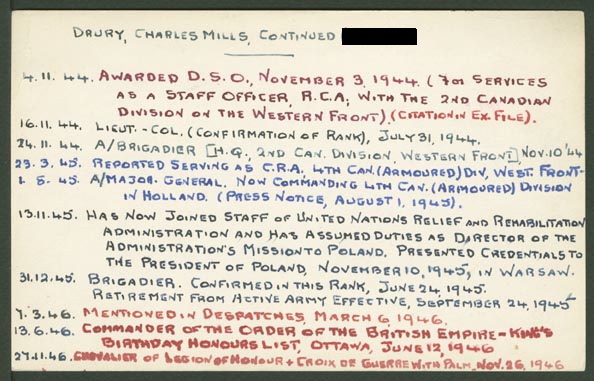 DRURY, CHARLES MILLS, CONTINUED
4.11.44. AWARDED D.S.O., NOVEMBER 3, 1944. (FOR SERVICES
AS A STAFF OFFICER, R.C.A, WITH THE 2ND CANADIAN
DIVISION ON THE WESTERN FRONT). (CITATION IN EX. FILE).
16.11.44. LIEUT.-COL. (CONFIRMATION OF RANK), JULY 31, 1944.
24.11.44. A/BRIGADIER [H.Q., 2ND CAN. DIVISION, WESTERN FRONT] NOV. 10 '44
23.3.45. REPORTED SERVING AS C.R.A. 4TH CAN. (ARMOURED) DIV, WEST. FRONT-
1.8.45. A/MAJOR. GENERAL. NOW COMMANDING 4TH CAN. (ARMOURED) DIVISION
IN HOLLAND. (PRESS NOTICE, AUGUST 1, 1945).
13.11.45. HAS NOW JOINED STAFF OF UNITED NATIONS RELIEF AND REHABILITATION
ADMINISTRATION AND HAS ASSUMED DUTIES AS DIRECTOR OF THE
ADMINISTRATION'S MISSION TO POLAND. PRESENTED CREDENTIALS TO
THE PRESIDENT OF POLAND, NOVEMBER 10, 1945, IN WARSAW.
31.12.45. BRIGADIER. CONFIRMED IN THIS RANK, JUNE 24, 1945.
RETIREMENT FROM ACTIVE ARMY EFFECTIVE, SEPTEMBER 24, 1945
7.3.46. MENTIONED IN DESPATCHES, MARCH 6, 1946.
13.6.46. COMMANDER OF THE ORDER OF THE BRITISH EMPIRE - KING'S
BIRTHDAY HONOURS LIST, OTTAWA, JUNE 12, 1946
27.11.46. CHEVALIER OF LEGION OF HONOUR + CROIX DE GUERRE WITH PALM, NOV. 26, 1946